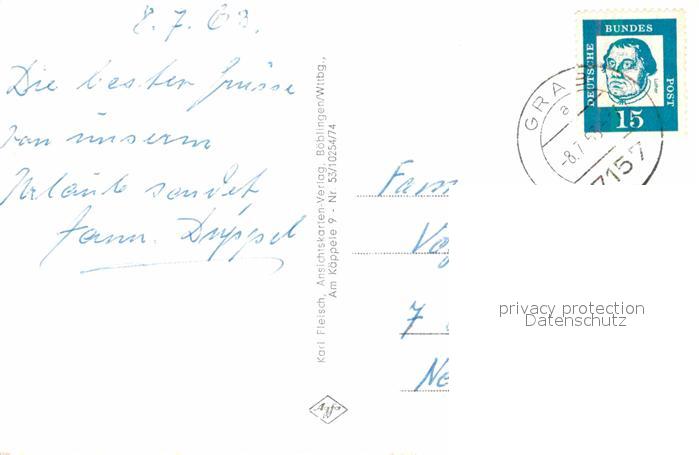 8.7.63.
Die besten Grüsse
von unserm
Urlaub sendet
Fam. Düppel
Karl Fleisch, Ansichtskarten-Verlag, Böblingen/Wttbg.,
Am Käppele 9 - Nr 53/10254/74
Agfa
DEUTSCHE
BUNDES
POST
15
GRA
a
-8.7
7157
Fam
7
Ne
privacy protection
Datenschutz